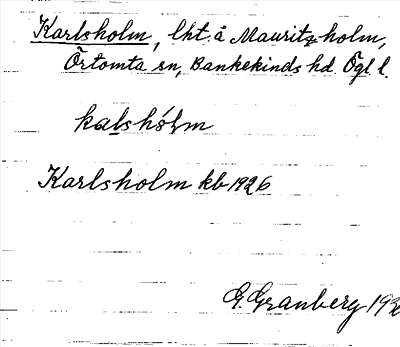 Karlsholm, lht. å Mauritzholm,
Örtomta sn, Bankekinds hd. Ögl l.
kalshólm
Karlsholm kb 1926
G Granberg 193